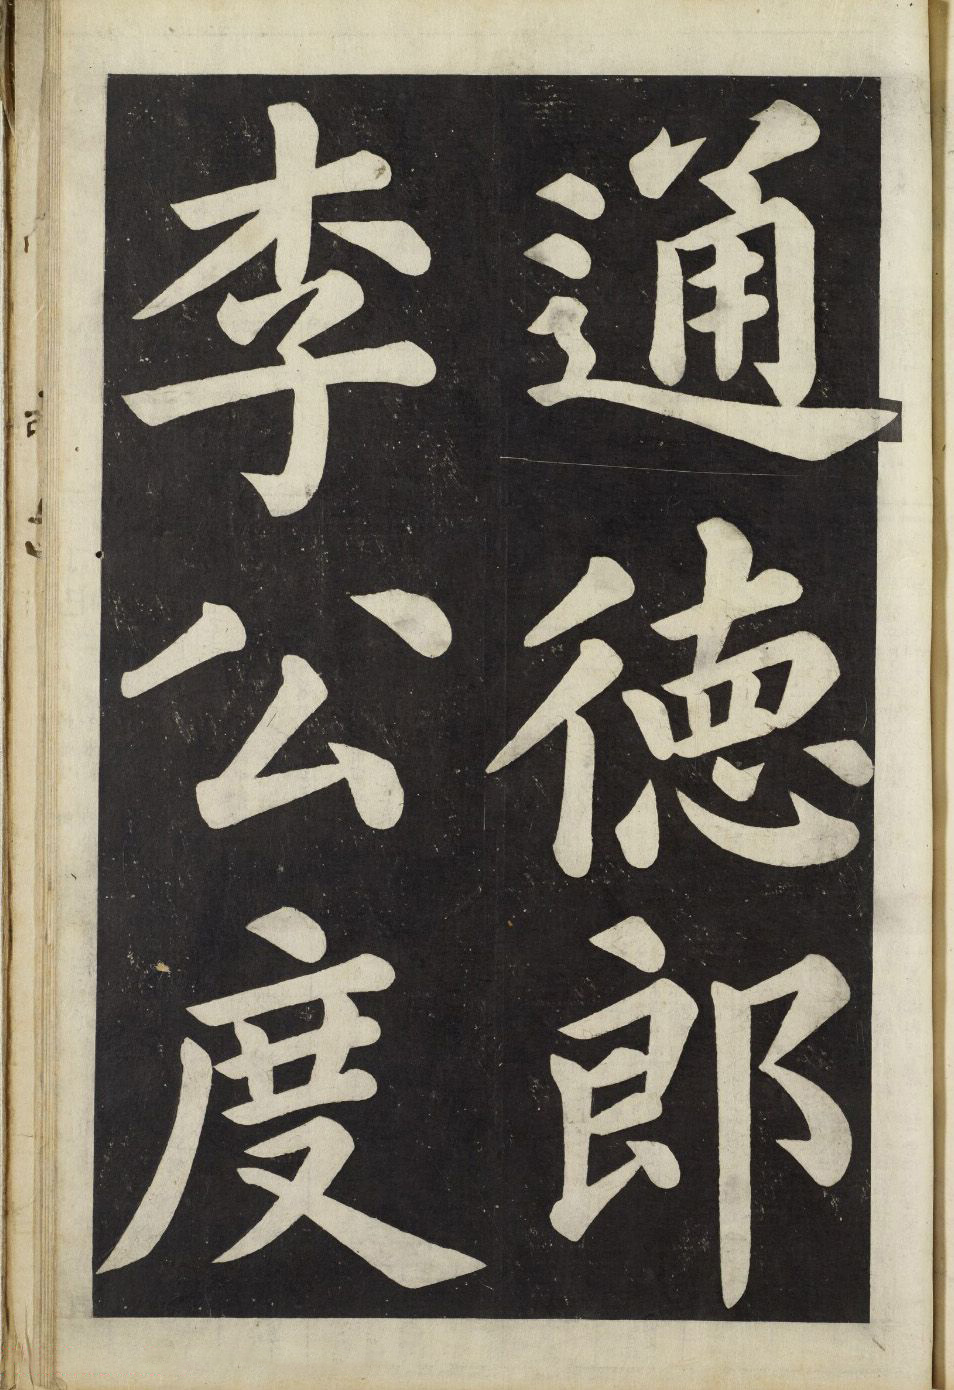 通德郎
李公度